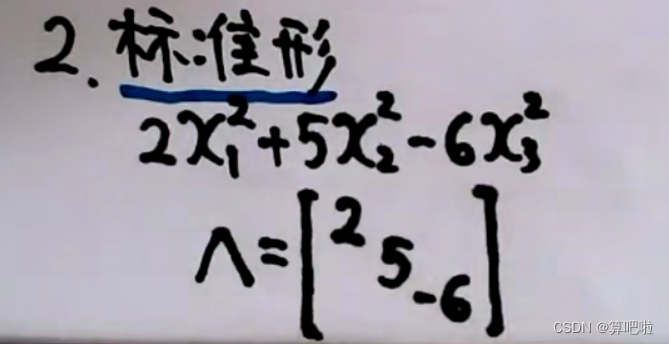 2. 标准形
2x₁² + 5x₂² - 6x₃²
Λ = [2 5 -6]
CSDN @算吧啦